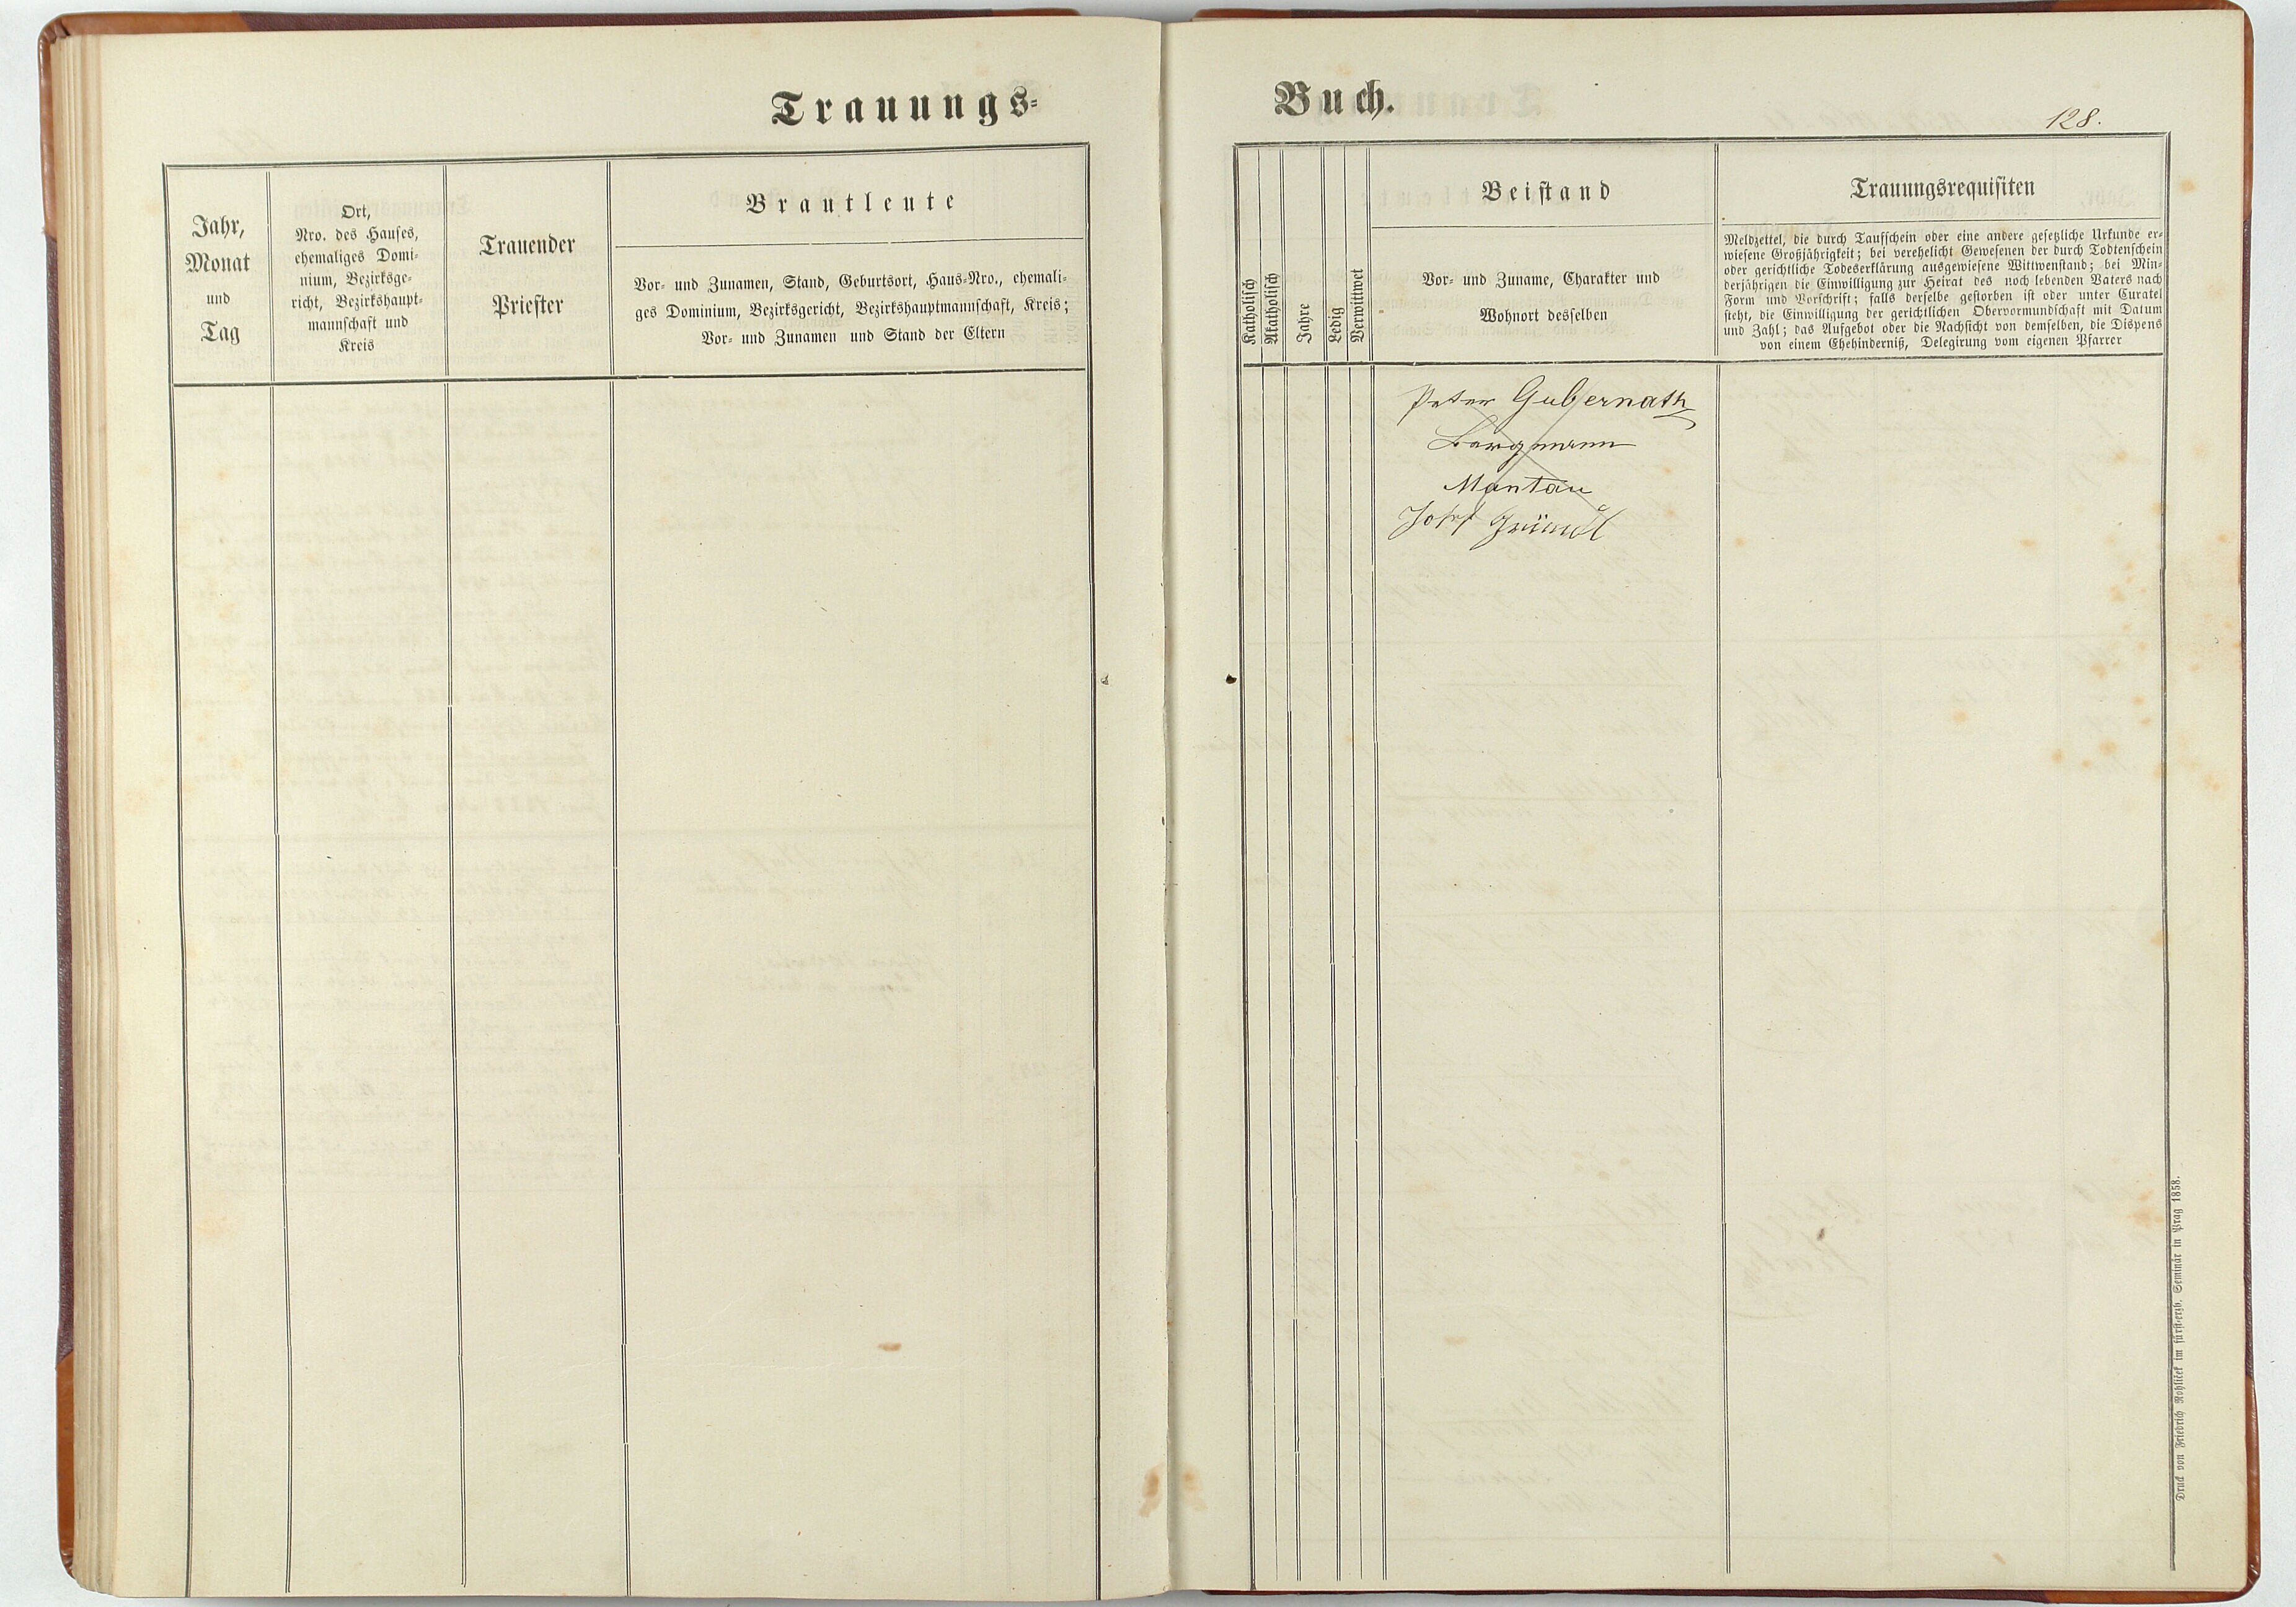 Trauungs-
Jahr,
Monat
und
Tag
Ort,
Nro. des Hauses,
ehemaliges Domi-
nium, Bezirksge-
richt, Bezirkshaupt-
mannschaft und
Kreis
Trauender
Priester
Brautleute
Vor- und Zunamen, Stand, Geburtsort, Haus-Nro., ehemali-
ges Dominium, Bezirksgericht, Bezirkshauptmannschaft, Kreis;
Vor- und Zunamen und Stand der Eltern
Buch.
128.
Katholisch
Akatholisch
Jahre
Ledig
Verwittwet
Beistand
Vor- und Zuname, Charakter und
Wohnort desselben
Trauungsrequisiten
Meldzettel, die durch Taufschein oder eine andere gesetzliche Urkunde er-
wiesene Großjährigkeit; bei verehelicht Gewesenen der durch Todtenschein
oder gerichtliche Todeserklärung ausgewiesene Wittwenstand; bei Min-
derjährigen die Einwilligung zur Heirat des noch lebenden Vaters nach
Form und Vorschrift; falls derselbe gestorben ist oder unter Curatel
steht, die Einwilligung der gerichtlichen Obervormundschaft mit Datum
und Zahl; das Aufgebot oder die Nachsicht von demselben, die Dispens
von einem Ehehinderniß, Delegirung vom eigenen Pfarrer
Peter Gubernath
Bergmann
Mantau
Josef Gründl
Druck von Friedrich Rohliček im fürst-erzb. Seminär in Prag 1858.